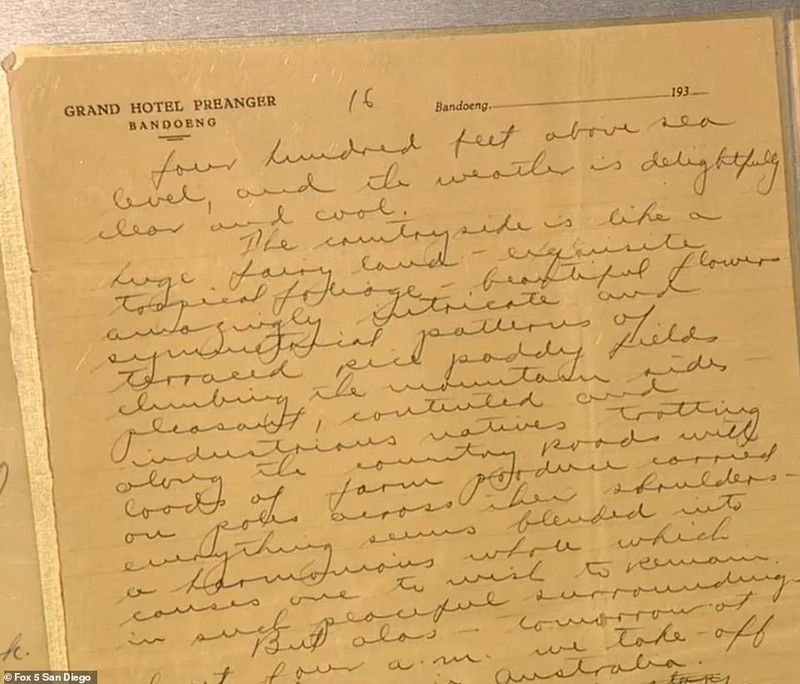 GRAND HOTEL PREANGER
BANDOENG
16
Bandoeng, 193
four hundred feet above sea
level, and the weather is delightfully
clear and cool.
The countryside is like a
huge fairy land - exquisite
tropical foliage - beautiful flowers
amazingly intricate and
symmetrical patterns of
terraced rice paddy fields
climbing the mountain sides -
pleasant, contented and
industrious natives trotting
along the country roads with
loads of farm produce carried
on poles across their shoulders -
everything seems blended into
a harmonious whole which
causes one to wish to remain
in such peaceful surroundings.
But alas - tomorrow at
about four a.m. we take-off
Australia.
k.
© Fox 5 San Diego